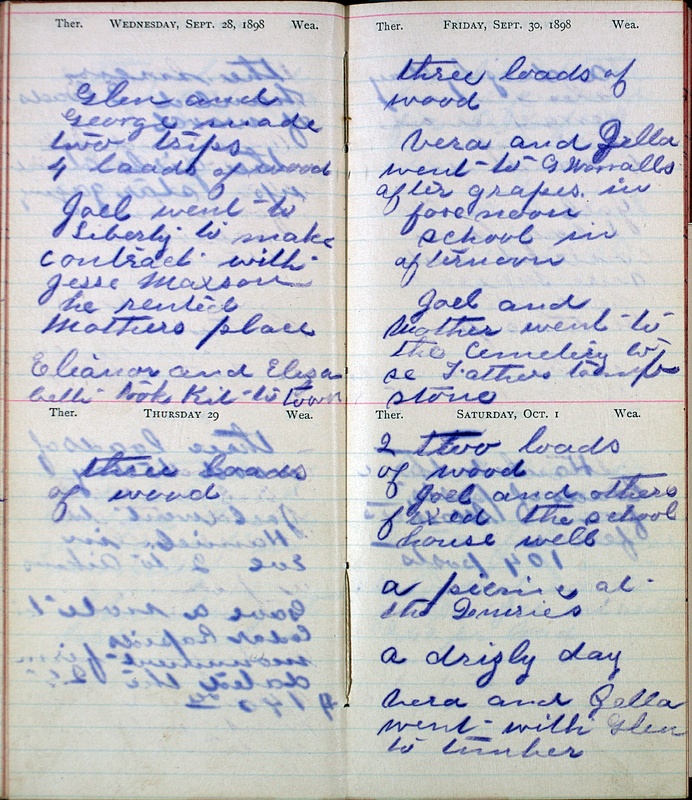 Ther. WEDNESDAY, SEPT. 28, 1898 Wea.
Glen and
George made
two trips
4 loads of wood
Joel went to
Liberty to make
contract with
Jesse Maxson
he rented
Mothers place
Eleanor and Eliza
beth took Kit to town
Ther. THURSDAY 29 Wea.
three loads
of wood
Ther. FRIDAY, SEPT. 30, 1898 Wea.
three loads of
wood
Vera and Zella
went to G Worralls
after grapes in
forenoon
school in
afternoon
Joel and
Mother went to
the Cemetery to
se Fathers tomb
stone
Ther. SATURDAY, OCT. 1 Wea.
2 two loads
of wood
Joel and others
fixed the school
house well
a picnic at
the
a drizly day
Vera and Zella
went with Glen
to timber